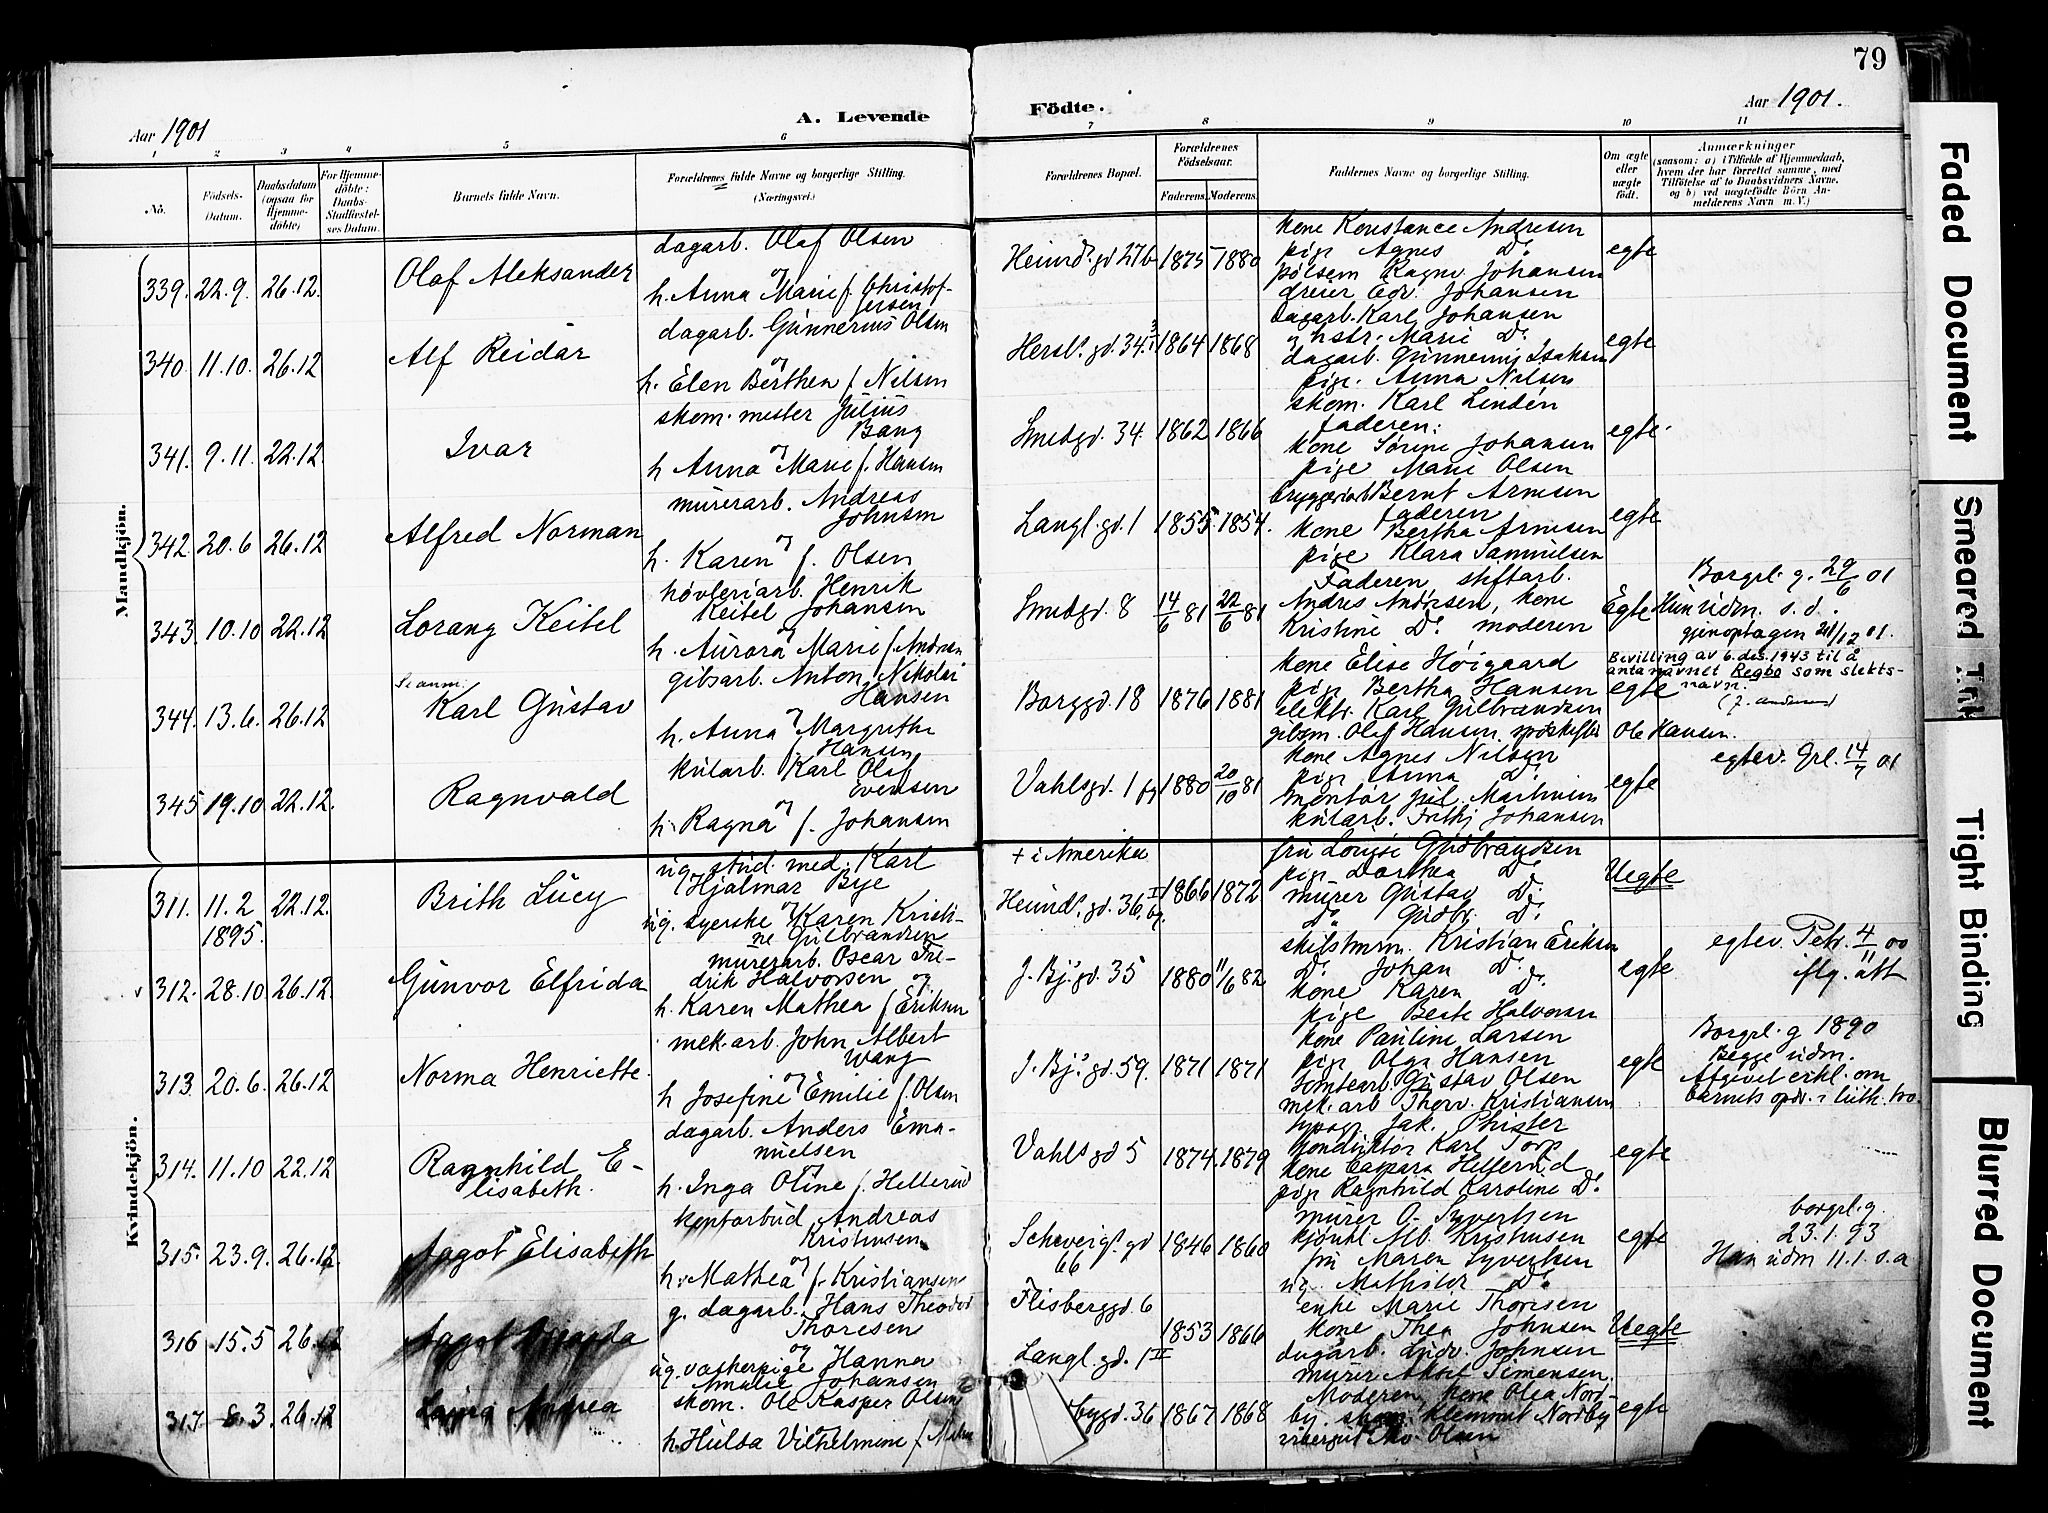 79
Aar 1901
A. Levende
Födte.
Aar 1901.
1 2 3 4 5 6 7 8 9 10 11
No.
Födsels-
Datum.
Daabsdatum
(ogsaa for
Hjemme-
döbte)
For Hjemme-
döbte:
Daabs-
Stadfæstel-
ses Datum.
Barnets fulde Navn.
Forældrenes fulde Navne og borgerlige Stilling.
(Næringsvei.)
Forældrenes Bopæl.
Forældrenes
Födselsaar.
Faderens. Moderens.
Faddernes Navne og borgerlige Stilling.
Om ægte
eller
uægte
födt.
Anmærkninger
(saasom: a) i Tilfælde af Hjemmedaab,
hvem der har forrettet samme, med
Tilföielse af to Daabsvidners Navne,
og b) ved uægtefödte Börn An-
melderens Navn m. V.)
Mandkjön.
339. 22.9. 26.12. Olaf Aleksander
dagarb. Olaf Olsen
og
h. Anna Marie f. Christof-
fersen
Heimd. gd 27b 1875 1880
kone Konstance Andresen
pige Agnes Do.
pølsem. Ragnv. Johansen
dreier Edv. Johansen
egte
340. 11.10. 26.12 Alf Reidar
dagarb. Gunnerius Olsen
og
h. Elen Berthea f. Nilsen
Hersl. gd. 34. 1864 1868
Dagarb. Karl Johansen
og hstr. Marie Do.
dagarb. Gunnerius Isaksen
pige. Anna Nilsen
egte
341. 9.11. 22.12. Ivar
skom. mester Julius
Bang
og
h Anna Marie f. Hansen
Smedgd. 34. 1862 1866
skom. Karl Lindén
faderen:
kone Sørine Johansen
pige Marie Olsen
egte.
342. 20.6 26.12 Alfred Norman
murerarb. Andreas
Johnsen
og
h. Karen f. Olsen
Langl. gd. 1 1855 1854.
bryggeriarb Bernt Arnesen
faderen
kone Bertha Arnesen
pige Klara Samuelsen
egte
343. 10.10 22.12 Lorang Keitel
høvleriarb. Henrik
Keitel Johansen
og
h. Aurora Marie f. Andresen
Smedgd. 8 14/6 81 22/6 81
Faderen, skiftarb.
Andrs Andresen, kone
Kristine Do. moderen
Egte
Borgel. g. 29/6 01
Hun udm. s. d.
gjenoptagen 21/12 01.
344. 13.6. 26.12 Karl Gustav
gibsarb. Anton Nikolai
Hansen
og
h. Anna Margrethe
f. Hansen
Borggd. 18 1876 1881
kone Elise Høigaard
pige Bertha Hansen
elektr. Karl Gulbrandsen
gibsm. Olaf Hansen
egte
Bevilling av 6. des. 1943 til å
anta navnet Regbo som slekts-
navn.
Ole Hansen.
345 19.10 22.12. Ragnvald
kularb. Karl Olaf
Evensen
og
h. Ragna f. Johansen
Vahlsgd. 1 1880 20/10 81
kone Agnes Nilsen
pige Anna Do.
kularb. Frithj Johansen
egte
egtev. Grl. 14/7 01
Kvindekjön.
311. 11.2 1895. 22.12. Brith Lucy
ug. stud. med. Karl
Hjalmar Bye
og
ug. syerske Karen Kristi-
ne Gulbrandsen
+ i Amerika
Heimd. gd. 36 1866 1872
fru Louise Gudbrandsen
pige Dorthea Do.
murer Gustav Do.
Do. Gudbr. Do.
Uegte
312. 28.10. 26.12. Gunvor Elfrida
murerarb. Oscar Fre-
drik Halvorsen og
h. Karen Mathea f. Eriksen
J. Bj. gd. 35 1880 11/6 82
skilstmrm. Kristian Eriksen
Do. Johan Do.
kone Karen Do.
pige Beate Halvorsen
egte
egtev. Petr. 4/11 00
iflg. att
313 20.6. 26.12 Norma Henriette.
mek. arb. John Albert
Wang
og
h Josefine Emilie f. Olsen
J. Bj. gd. 59. 1871 1871
kone Pauline Larsen
pige Olga Hansen
tomtearb. Gustav Olsen
mek. arb Thorv. Kristiansen
egte
Borgel. g 1890
Begge udm.
Afgivet erkl. om
barnets opdr. i luth. tro.
314. 11.10 22.12 Ragnhild E-
lisabeth.
dagarb. Anders Ema-
nuelsen
og
h. Inga Oline f. Hellerud
Vahls gd 5 1874. 1879
typogr. Jak. Phister
Konduktør Karl Torp
kone Caspara Hellerud
pige Ragnhild Karoline Do.
egte
315. 23.9. 26.12 Aagot Elisabeth
kontorbud Andreas
Kristensen
og
h. Mathea f. Kristiansen
Schweigs. gd
66 1846 1860
murer O. Syvertsen
Kristensen
fru Maren Syvertsen
ug. Mathilde Do.
egte
borgel. g.
23.1.93
Han udm 11.1. s. a
316 15.5 26.12 Aagot
g. dagarb. Hans Theodor
Thoresen
og
ug. vaskerpige Hanna
Amalie Johansen
Flisberggd. 6
Langl. gd. 1 II 1853 1866
enke Marie Thoresen
kone Thea Johnsen
dagarb. Andr. Johnsen
murer Aksel Simensen.
Uegte
317 8.3. 26.12
skom. Ole Kasper Olsen
og
h. Hulda Vilhelmine f.
bygd. 36 1867 1868
Moderen, kone Olea Nord-
by. skom. Klemmet Nordby
Olsen
egte
Faded Document
Smeared Ink
Tight Binding
Blurred Document